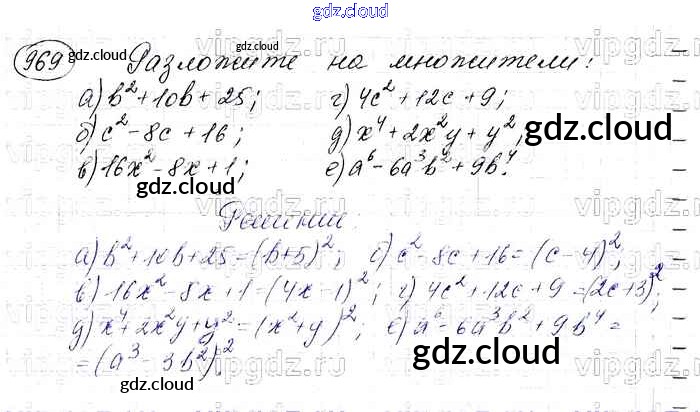 gdz.cloud
969 Разложите на множители:
а) b² + 10b + 25; г) 4c² + 12c + 9;
б) c² - 8c + 16; д) x⁴ + 2x²y + y²;
в) 16x² - 8x + 1; е) a⁶ - 6a³b² + 9b⁴.
Решение.
а) b² + 10b + 25 = (b+5)²; б) c² - 8c + 16 = (c-4)²;
в) 16x² - 8x + 1 = (4x-1)²; г) 4c² + 12c + 9 = (2c+3)²;
д) x⁴ + 2x²y + y² = (x²+y)²; е) a⁶ - 6a³b² + 9b⁴ =
= (a³ - 3b²)².